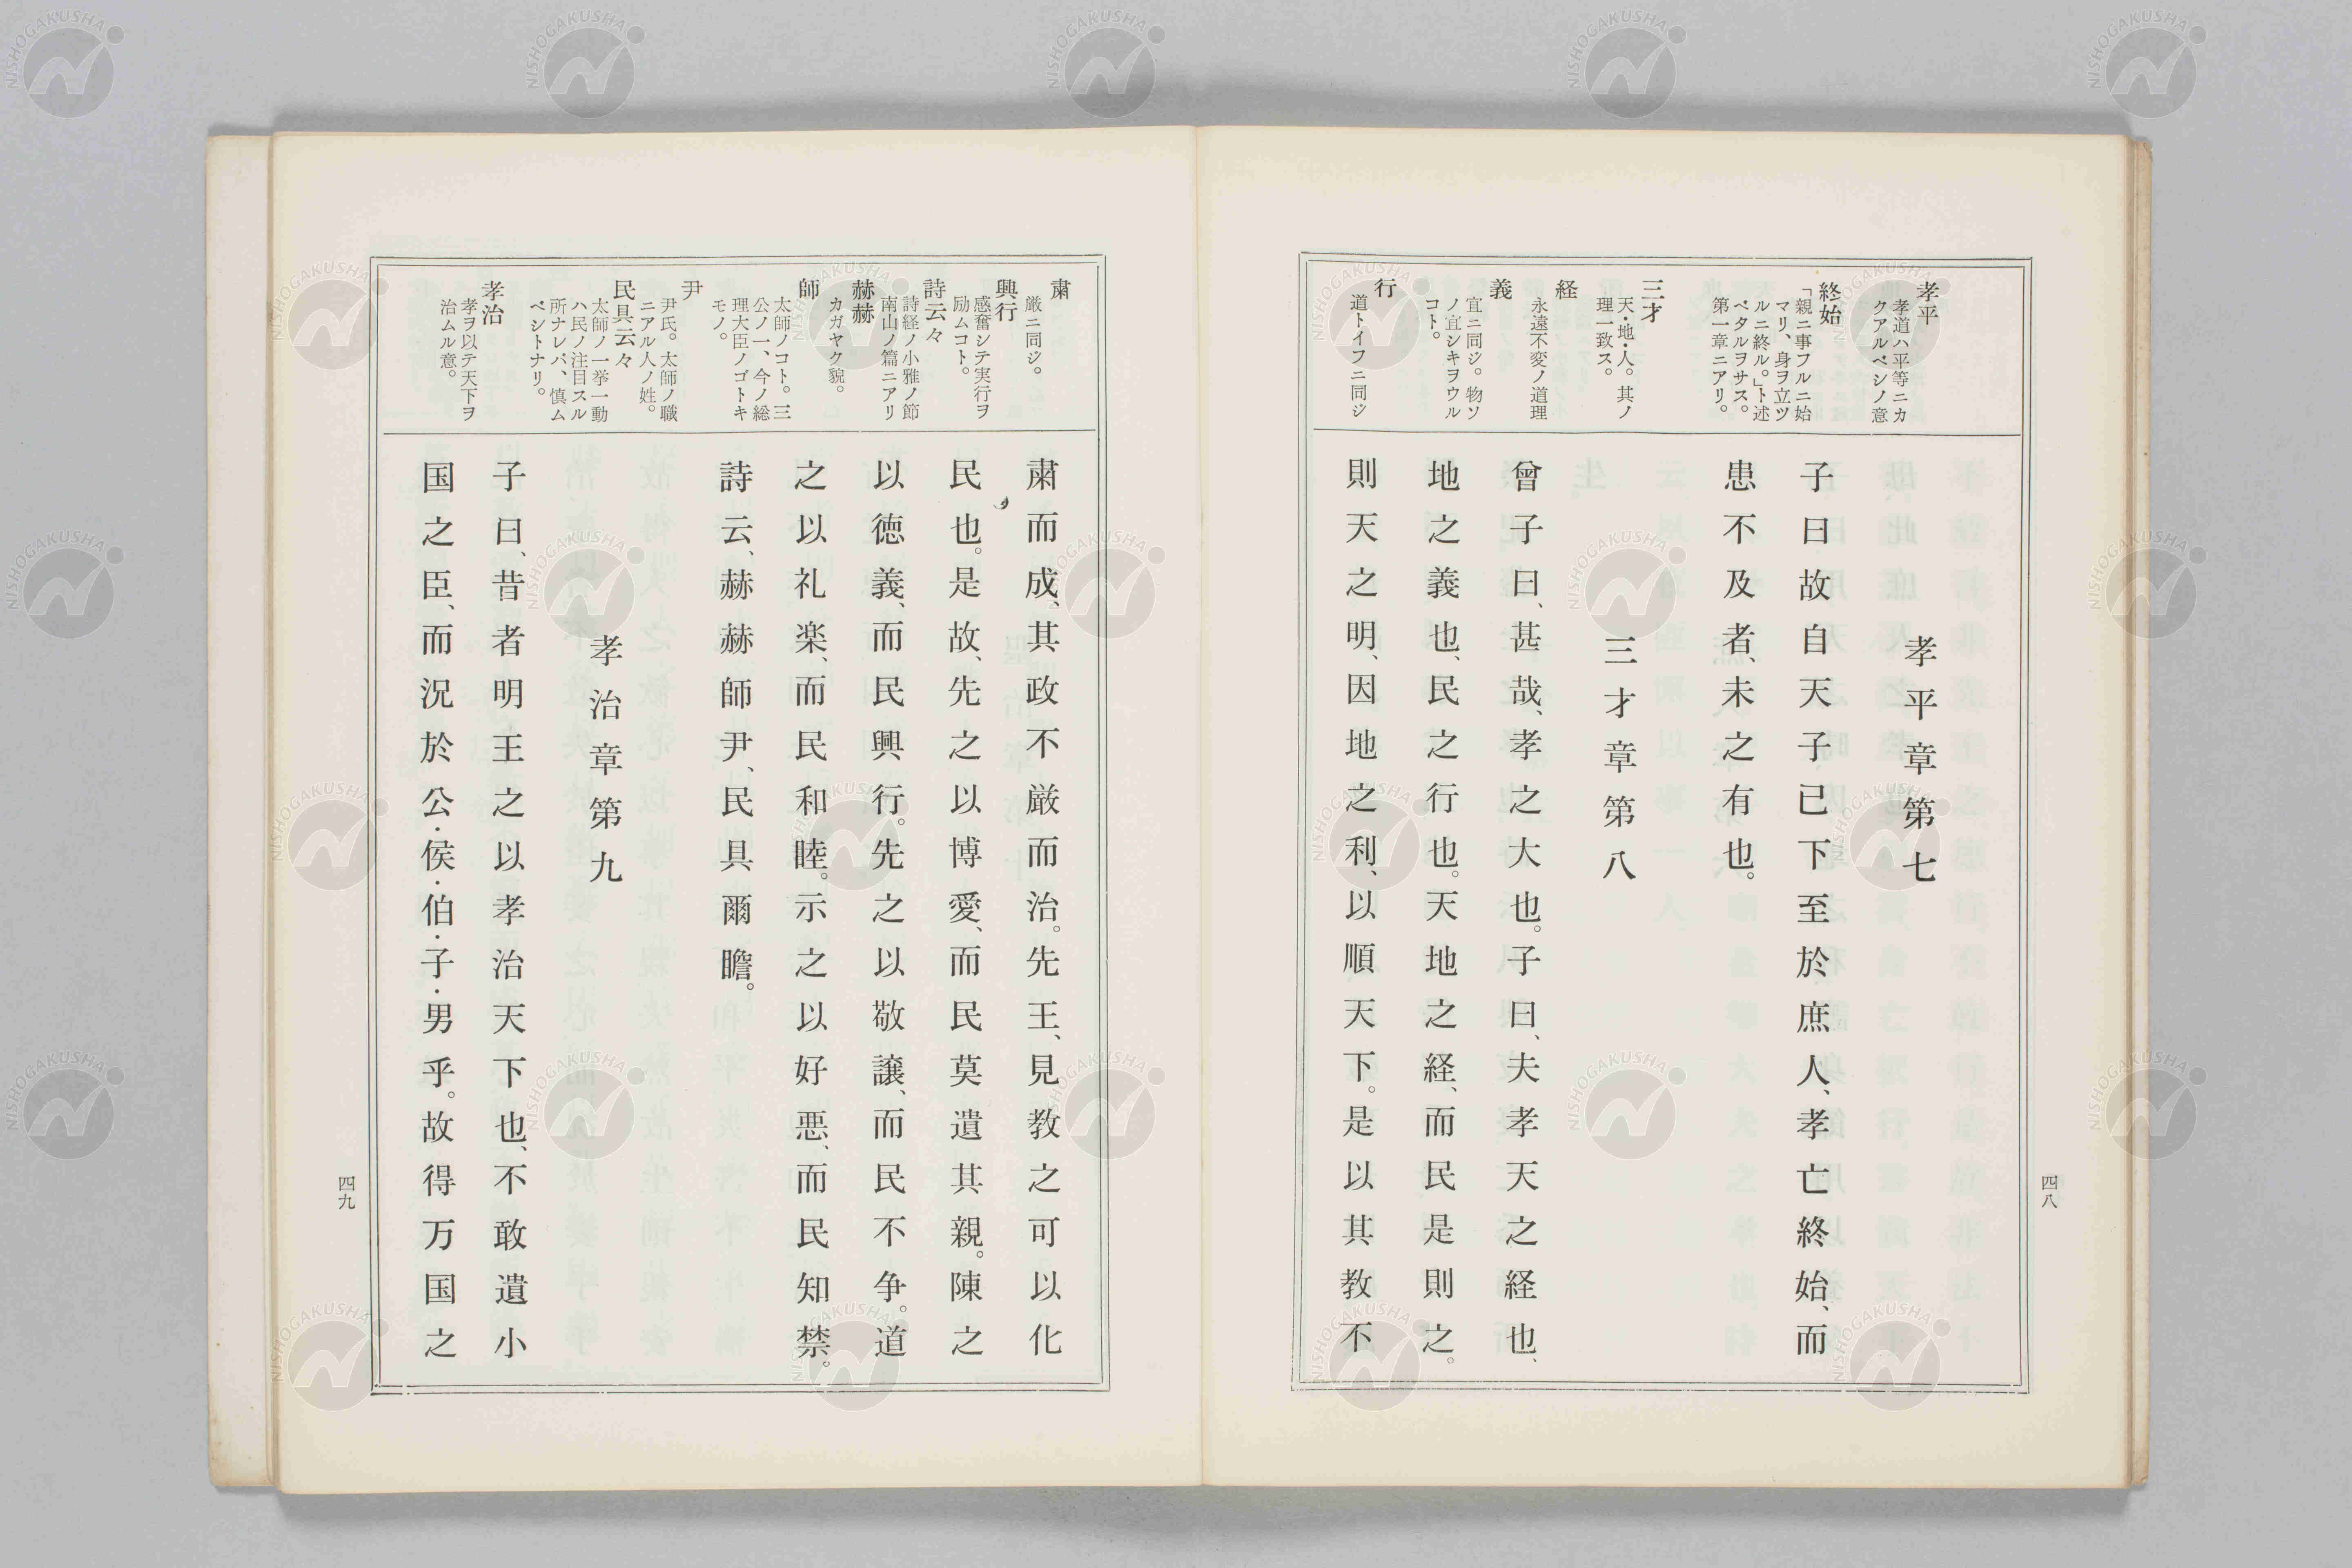 孝平
孝道ハ平等ニカ
クアルベシノ意
終始
「親ニ事フルニ始
マリ、身ヲ立ツ
ルニ終ル。」ト述
ベタルヲサス。
第一章ニアリ。
三才
天・地・人。其ノ
理一致ス。
経
永遠不変ノ道理
義
宜ニ同ジ。物ソ
ノ宜シキヲウル
コト。
行
道トイフニ同ジ
孝平章第七
子曰故自天子已下至於庶人、孝亡終始、而
患不及者、未之有也。
三才章第八
曾子曰、甚哉、孝之大也。子曰、夫孝天之経也、
地之義也、民之行也。天地之経、而民是則之。
則天之明、因地之利、以順天下。是以其教不
四八
粛
厳ニ同ジ。
興行
感奮シテ実行ヲ
励ムコト。
詩云々
詩経ノ小雅ノ節
南山ノ篇ニアリ
赫赫
カガヤク貌。
師
太師ノコト。三
公ノ一、今ノ総
理大臣ノゴトキ
モノ。
尹
尹氏。太師ノ職
ニアル人ノ姓。
民具云々
太師ノ一挙一動
ハ民ノ注目スル
所ナレバ、慎ム
ベシトナリ。
孝治
孝ヲ以テ天下ヲ
治ムル意。
粛而成、其政不厳而治。先王、見教之可以化
民也。是故、先之以博愛、而民莫遺其親。陳之
以徳義、而民興行。先之以敬譲、而民不争。道
之以礼楽、而民和睦。示之以好悪、而民知禁。
詩云、赫赫師尹、民具爾瞻。
孝治章第九
子曰、昔者明王之以孝治天下也、不敢遺小
国之臣、而況於公・侯・伯・子・男乎。故得万国之
四九
NISHOGAKUSHA